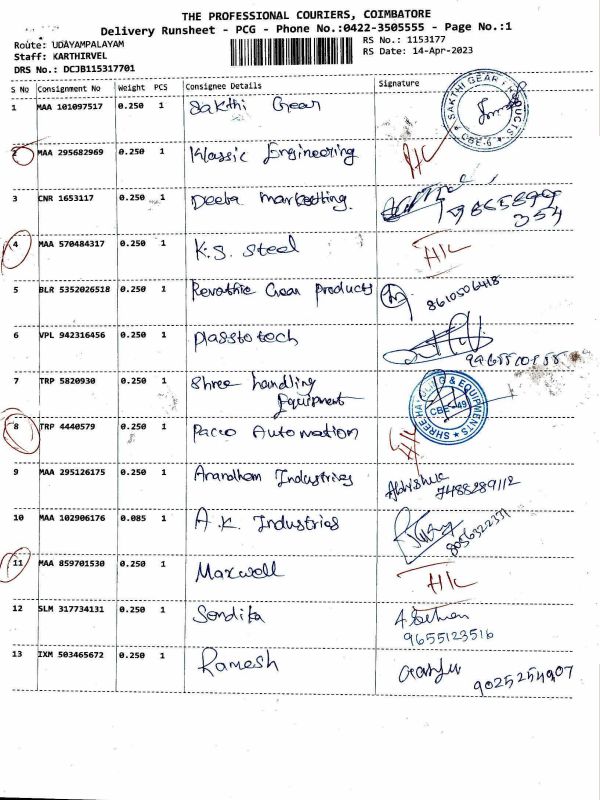 THE PROFESSIONAL COURIERS, COIMBATORE
Delivery Runsheet - PCG - Phone No.:0422-3505555 - Page No.:1
Route: UDAYAMPALAYAM
RS No.: 1153177
Staff: KARTHIRVEL
RS Date: 14-Apr-2023
DRS No.: DCJB115317701
S No Consignment No Weight PCS Consignee Details Signature
1 MAA 101097517 0.250 1 Sakthi Gear
SAKTHI GEAR PRODUCTS CBE-6
2 MAA 295682969 0.250 1 Klassic Engineering H/C
3 CNR 1653117 0.250 1 Deeba marketting.
4 MAA 570484317 0.250 1 K.S. Steel H/C
5 BLR 5352026518 0.250 1 Revathie Gear Products 8610506418
6 VPL 942316456 0.250 1 Plassto tech
7 TRP 5820930 0.250 1 Shree handling
Equipment
SHREE HANDLING & EQUIPMENTS CBE-49
8 TRP 4440579 0.250 1 Pacco Automation H/C
9 MAA 295126175 0.250 1 Anandham Industries
7488289112
10 MAA 102906176 0.085 1 A.K. Industries 8056322331
11 MAA 859701530 0.250 1 Maxwell H/C
12 SLM 317734131 0.250 1 Sondika
9655123516
13 IXM 503465672 0.250 1 Ramesh
9025254907